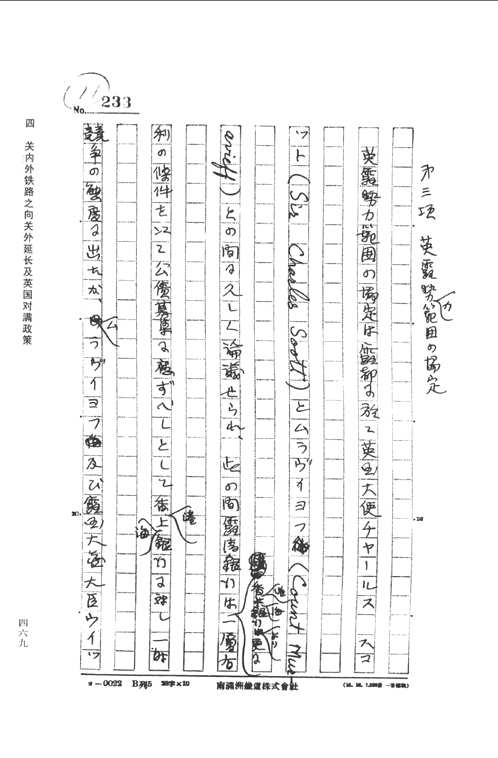 11
No. 233
第三項 英露勢力範囲の協定
英露勢力範囲の協定は露都に於て英国大使チャールス スコ
ット(Sir Charles Scott)とムラヴイヨフ伯(Count Mur-
avieff)との間に久しく論議せられ、此の間露清銀行は一層有
利の條件を以て公債募集に應ずべしとして香上銀行に対し一時
競争の態度に出たが、ムラヴイヨフ伯及び露国大蔵大臣ウイツ
南滿洲鐵道株式會社
ヨ-0022 B列5 28字×10
四 关内外铁路之向关外延长及英国对满政策
四六九